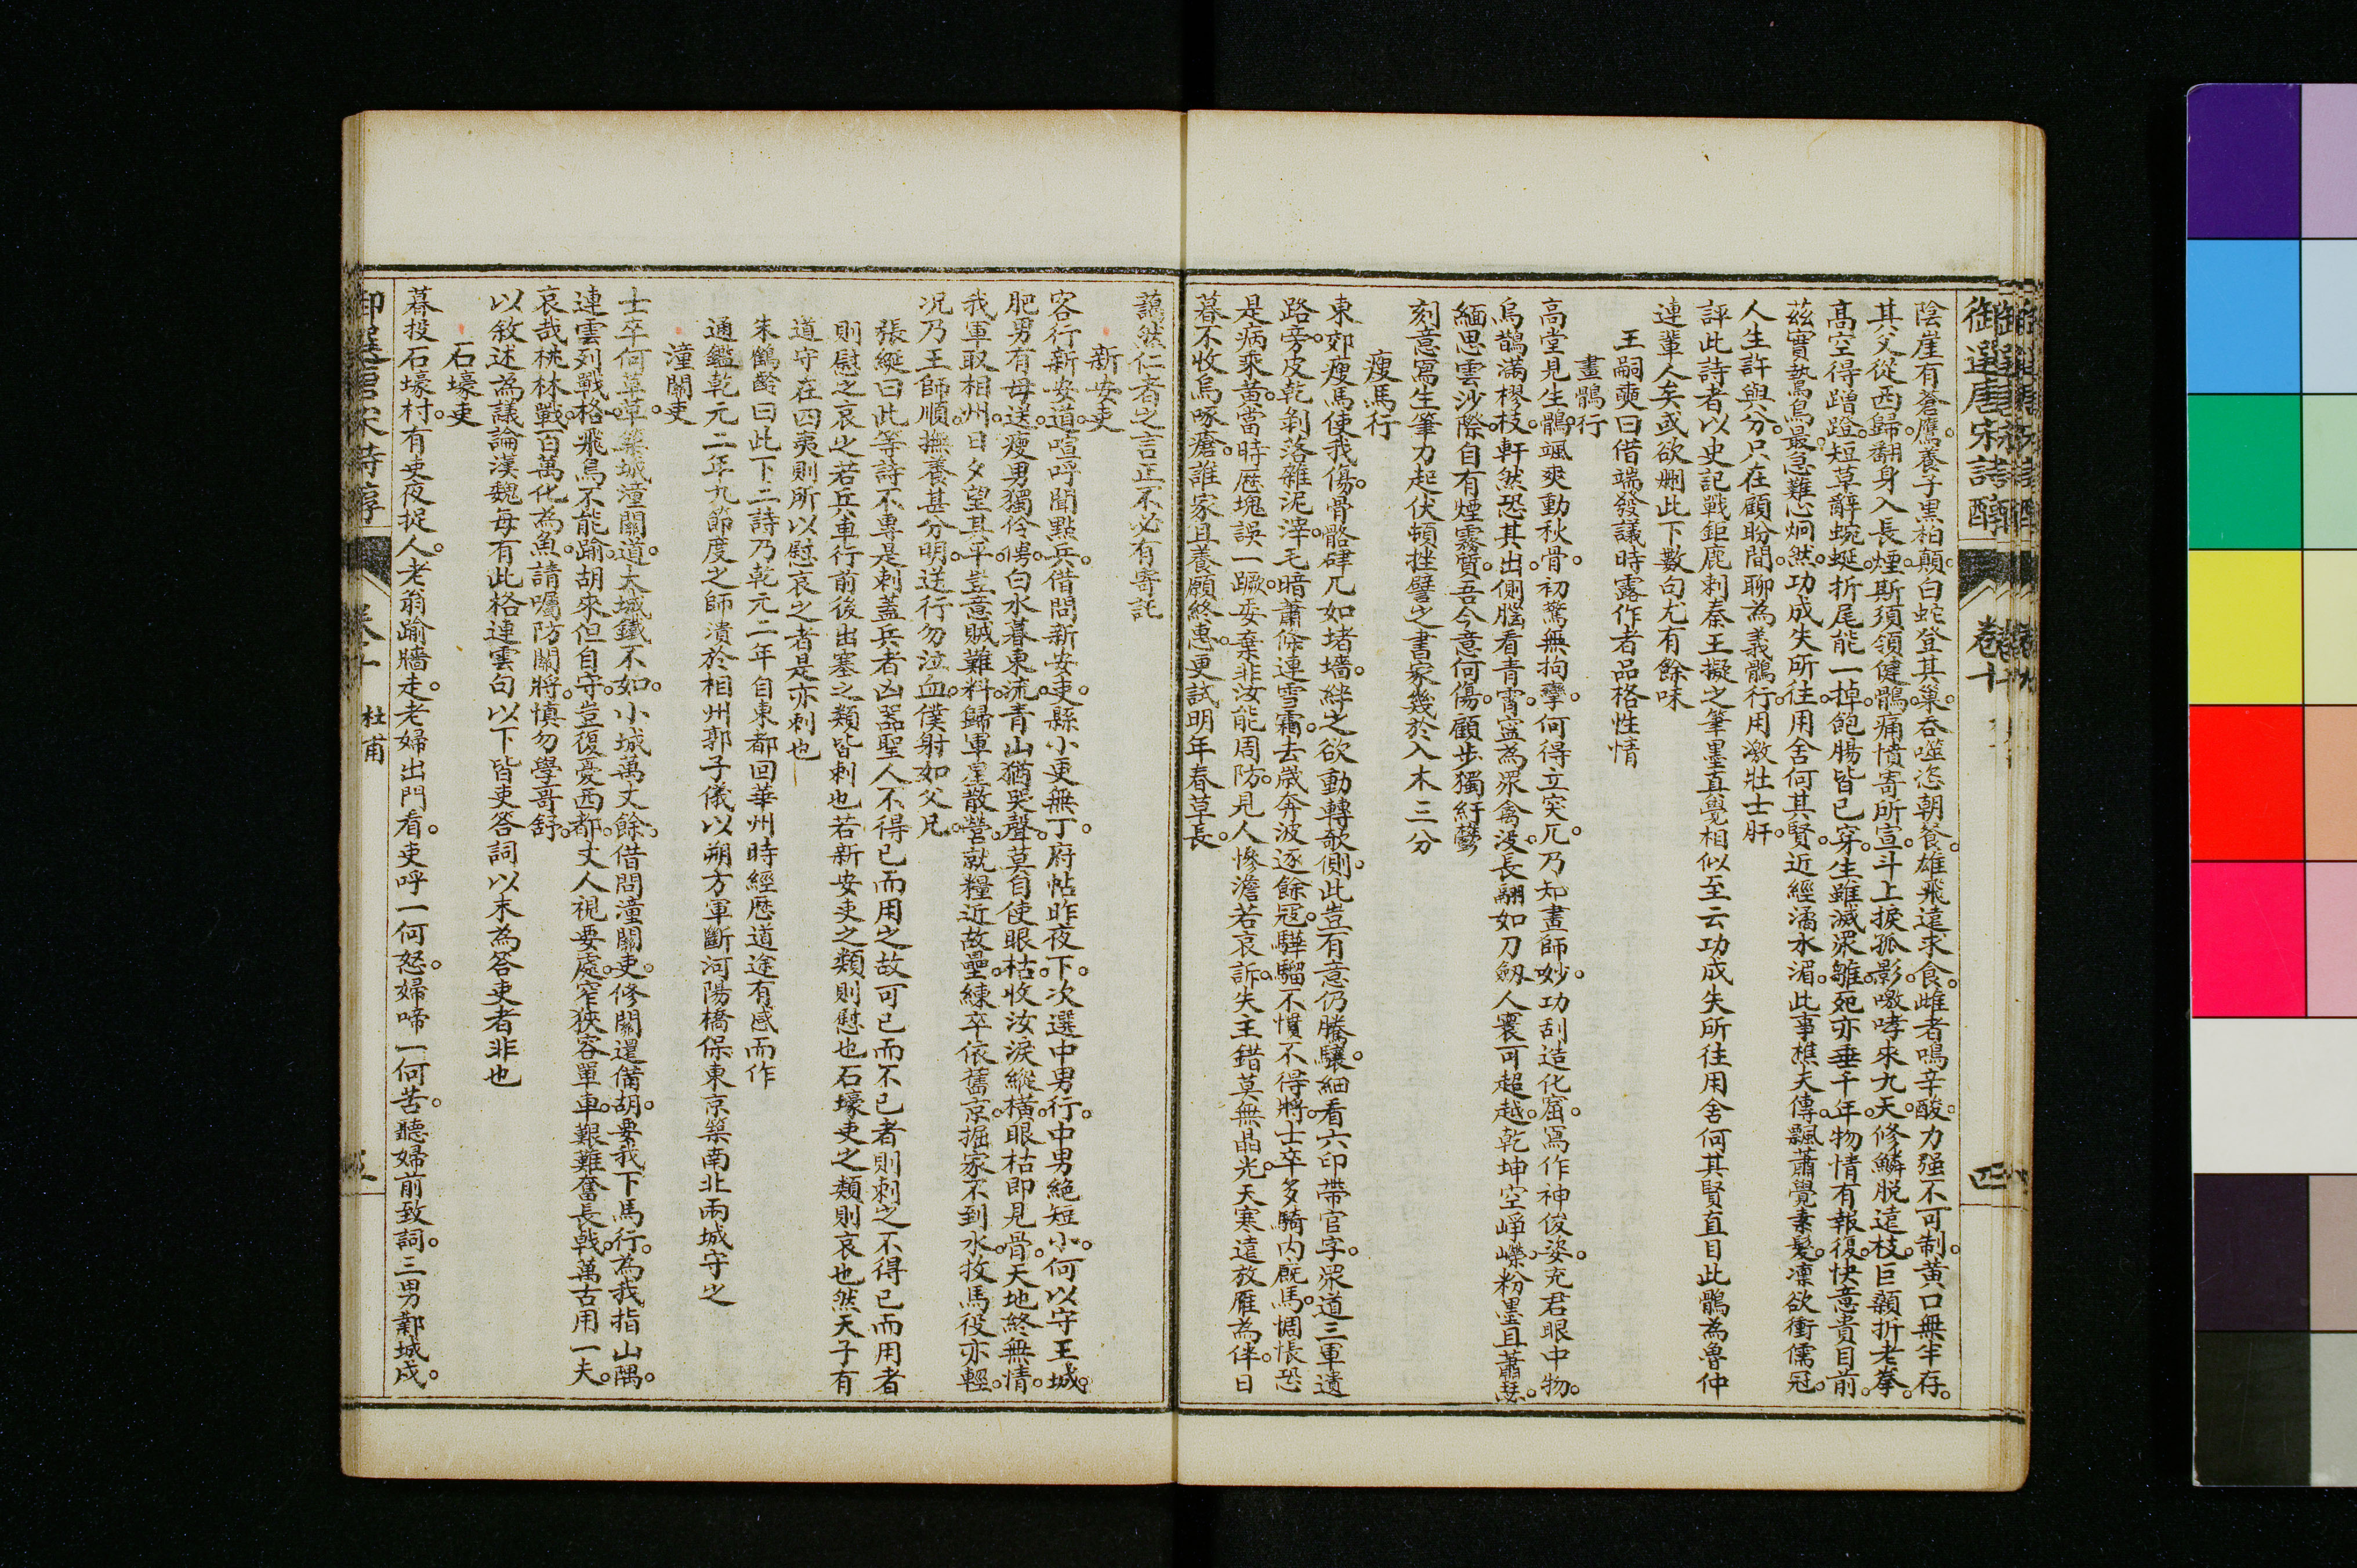 御選唐宋詩醇
卷十
四
陰崖有蒼鷹養子黑柏顛白蛇登其巢吞噬恣朝餐雄飛遠求食雌者鳴辛酸力强不可制黃口無半存
其父從西歸翻身入長煙斯須領健鶻痛憤寄所宣斗上捩孤影噭哮來九天修鱗脫遠枝巨顙折老拳
高空得蹭蹬短草辭蜿蜒折尾能一掉飽腸皆已穿生雖滅眾雛死亦垂千年物情有報復快意貴目前
茲實鷙鳥最急難心炯然功成失所往用舍何其賢近經潏水湄此事樵夫傳飄蕭覺素髮凜欲衝儒冠
人生許與分只在顧盼間聊為義鶻行用激壯士肝
評此詩者以史記戰鉅鹿刺秦王擬之筆墨直覺相似至云功成失所往用舍何其賢直目此鶻為魯仲
連輩人矣或欲刪此下數句尤有餘味
王嗣奭曰借端發議時露作者品格性情
畫鶻行
高堂見生鶻颯爽動秋骨初驚無拘攣何得立突兀乃知畫師妙功刮造化窟寫作神俊姿充君眼中物
烏鵲滿樛枝軒然恐其出側腦看青霄寧為眾禽沒長翮如刀劔人寰可超越乾坤空崢嶸粉墨且蕭瑟
緬思雲沙際自有煙霧質吾今意何傷顧步獨紆鬱
刻意寫生筆力起伏頓挫譬之書家幾於入木三分
瘦馬行
東郊瘦馬使我傷骨骼硉兀如堵墻絆之欲動轉欹側此豈有意仍騰驤細看六印帶官字眾道三軍遺
路旁皮乾剝落雜泥滓毛暗蕭條連雪霜去歲奔波逐餘寇驊騮不慣不得將士卒多騎內厩馬惆悵恐
是病乘黃當時歷塊誤一蹶委棄非汝能周防見人慘澹若哀訴失主錯莫無晶光天寒遠放雁為伴日
暮不收烏啄瘡誰家且養願終惠更試明年春草長
藹然仁者之言正不必有寄託
新安吏
客行新安道喧呼聞點兵借問新安吏縣小更無丁府帖昨夜下次選中男行中男絕短小何以守王城
肥男有母送瘦男獨伶俜白水暮東流青山猶哭聲莫自使眼枯收汝淚縱橫眼枯即見骨天地終無情
我軍取相州日夕望其平豈意賊難料歸軍星散營就糧近故壘練卒依舊京掘家不到水牧馬役亦輕
况乃王師順撫養甚分明送行勿泣血僕射如父兄
張綖曰此等詩不專是刺蓋兵者凶器聖人不得已而用之故可已而不已者則刺之不得已而用者
則慰之哀之若兵車行前後出塞之類皆刺也若新安吏之類則慰也石壕吏之類則哀也然天子有
道守在四夷則所以慰哀之者是亦刺也
朱鶴齡曰此下三詩乃乾元二年自東都回華州時經歷道途有感而作
通鑑乾元二年九節度之師潰於相州郭子儀以朔方軍斷河陽橋保東京築南北兩城守之
潼關吏
士卒何草草築城潼關道大城鐵不如小城萬丈餘借問潼關吏修關還備胡要我下馬行為我指山隅
連雲列戰格飛鳥不能踰胡來但自守豈復憂西都丈人視要處窄狹容單車艱難奮長戟萬古用一夫
哀哉桃林戰百萬化為魚請囑防關將慎勿學哥舒
以敘述為議論漢魏每有此格連雲句以下皆吏答詞以末為答吏者非也
石壕吏
暮投石壕村有吏夜捉人老翁踰牆走老婦出門看吏呼一何怒婦啼一何苦聽婦前致詞三男鄴城戍
御選唐宋詩醇
卷十
杜甫
五